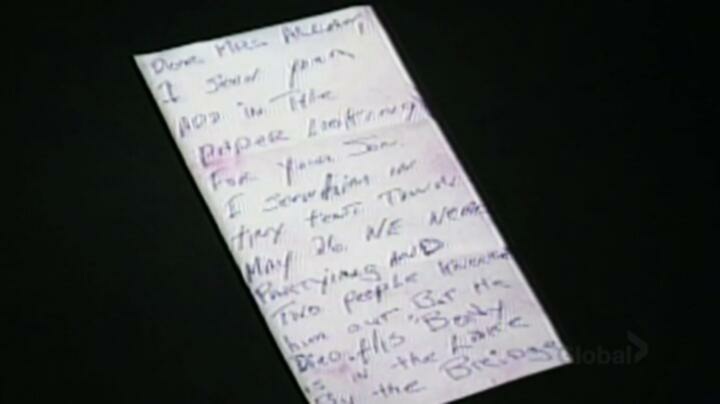 Dear Mrs Allison,
I seen your
ADD in the
PAPER Looking
For your Son.
I seen him in
tiny town Towards
MAY 26. WE WERE
Partying AND
Two people knocked
him out But He
Died. His Body
is in the Lake
By the Bridge
Global